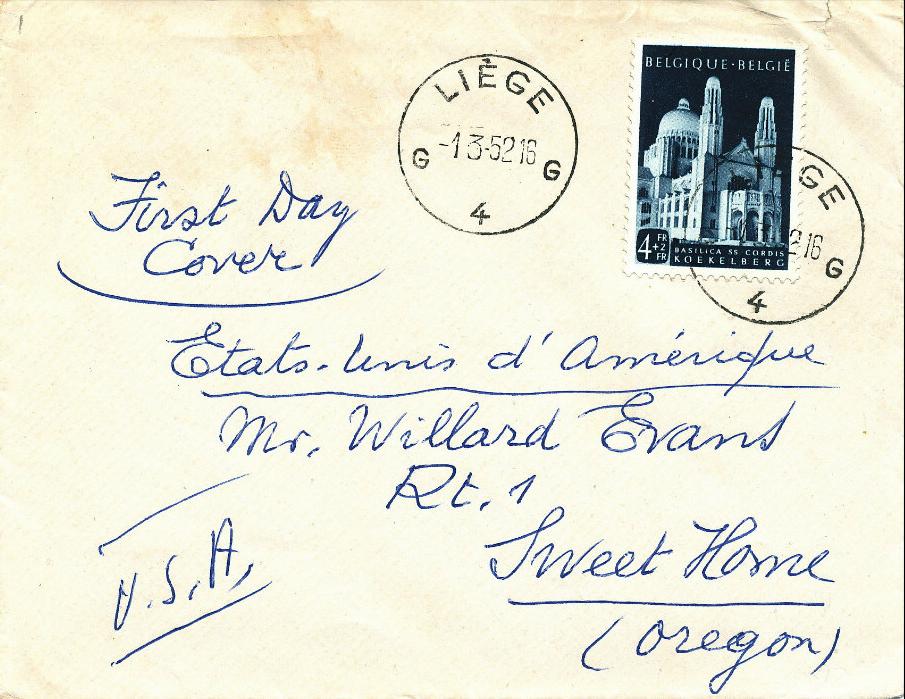 LIÈGE
-1 3-52 16
G G
4
BELGIQUE·BELGIË
4 FR
+2 FR
BASILICA SS CORDIS
KOEKELBERG
GE
2 16
G
4
First Day
Cover
Etats-Unis d'Amérique
Mr. Willard Evans
Rt. 1
Sweet Home
(Oregon)
U.S.A.